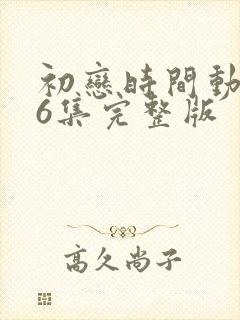 初戀時間動
6集完整版
高久尚子